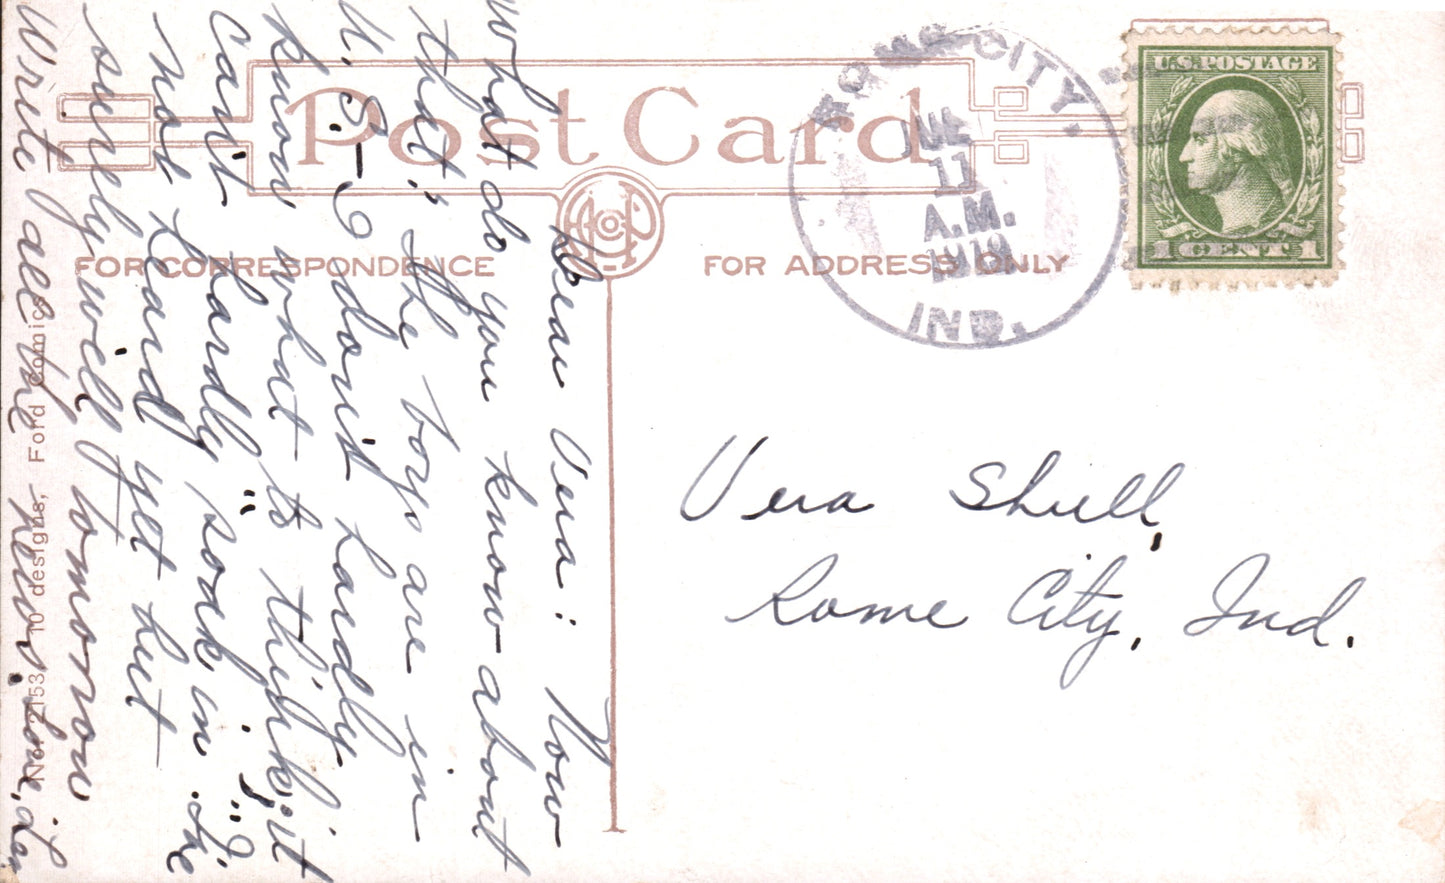 Post Card
FOR CORRESPONDENCE
FOR ADDRESS ONLY
ROME CITY.
JUL
11
A.M.
1919
IND.
U.S. POSTAGE
1 CENT 1
Vera Shull,
Rome City, Ind.
Dear Vera: Now
what do you know about
that; the boys are in
U. S. I don't hardly
know what to think; it
can't hardly "soak in"; I've
not heard yet but
surely will tomorrow
Write all the news. Love,
No. 2153, 10 designs, Ford Comics